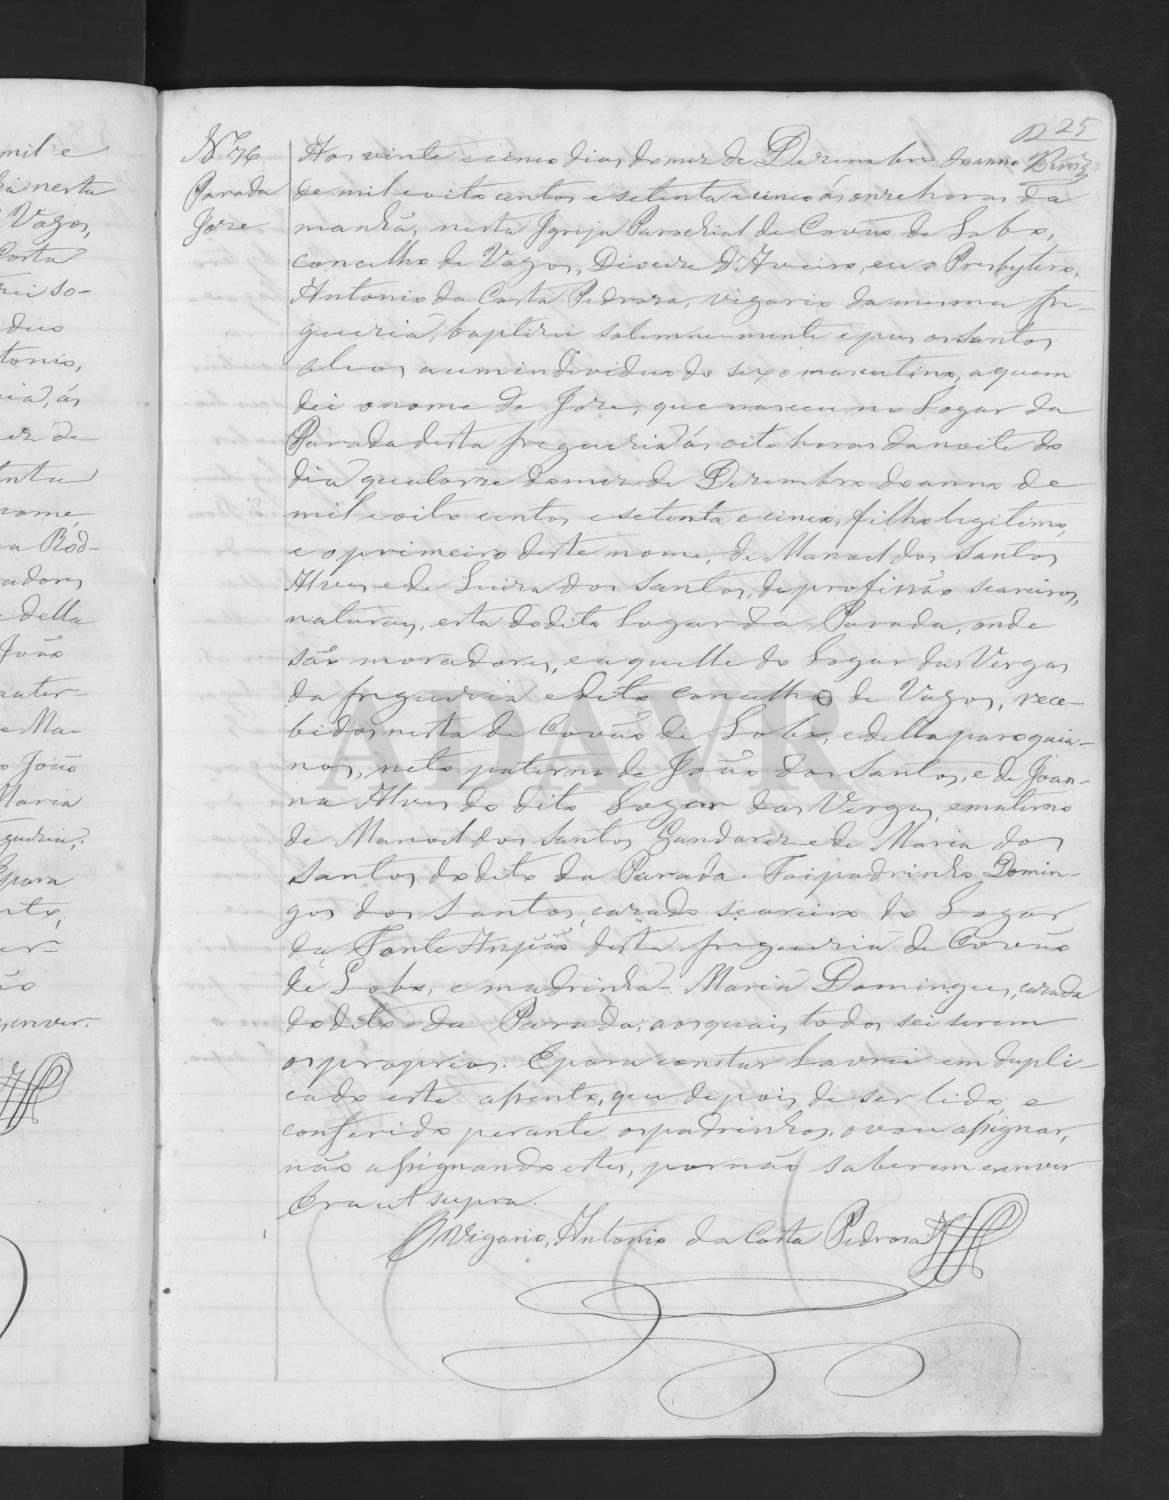 25
N.º 76
Parada
Joze
Aos vinte e cinco dias do mez de Dezembro do anno
de mil e oito centos e setenta e cinco ás onze horas da
manhã, nesta Igreja Parochial de Covão de Lobo,
concelho de Vagos, Diocese d'Aveiro, eu o Presbytero,
Antonio da Costa Pedroza, vigario da mesma fre-
guezia, baptizei solemnemente e puz os santos
oleos a um individuo do sexo masculino, a quem
dei o nome de Joze, que nasceu no Logar da
Parada desta freguezia ás oito horas da noite do
dia quatorze do mez de Dezembro do anno de
mil e oito centos e setenta e cinco, filho legitimo,
e o primeiro deste nome, de Manoel dos Santos
Alves e de Luiza dos Santos, de profissão seareiros,
naturaes, esta do dito Logar da Parada, onde
são moradores, e aquelle do Logar das Vergas
da freguezia e dito concelho de Vagos, rece-
bidos nesta de Covão de Lobo, e della paroquia-
nos, neto paterno de João dos Santos, e de Joan-
na Alves do dito Logar das Vergas, e materno
de Manoel dos Santos Gandarez e de Maria dos
Santos do dito da Parada. Foi padrinho Domin-
gos dos Santos, cazado seareiro do Logar
da Fonte Anjião desta freguezia de Covão
de Lobo, e madrinha Maria Domingues, cazada
do dito da Parada; aos quais todos sei serem
os proprios. E para constar lavrei em dupli-
cado este assento, que depois de ser lido, e
conferido perante os padrinhos, o vou assignar,
não assignando estes, por não saberem escrever
Era ut supra.
O Vigario, Antonio da Costa Pedroza
mil e
nesta
Vagos,
Costa
so-
tonio,
ás
de
nome
Rod-
adores
della
João
mater-
Ma-
João
Maria
guezia;
E para
escrever.
ADAVR